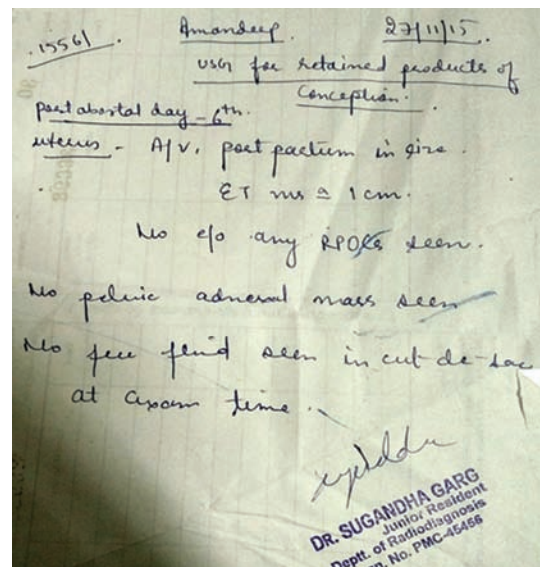 15561. Amandeep. 27/11/15.
USG for retained products of
Conception.
post abortal day - 6th.
uterus - A/V, post partum in size.
ET ms ≅ 1 cm.
No e/o any RPOCs seen.
No pelvic adnexal mass seen
No free fluid seen in cut-de-sac
at exam time.
DR. SUGANDHA GARG
Junior Resident
Deptt. of Radiodiagnosis
No. PMC-45456